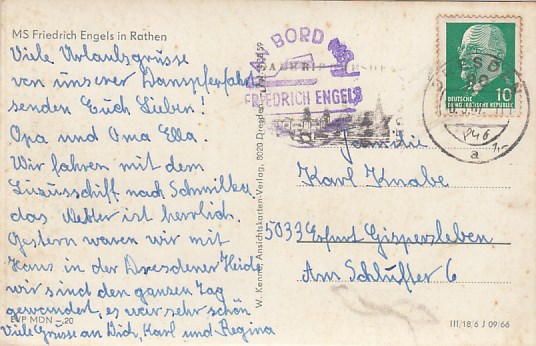 MS Friedrich Engels in Rathen
Viele Urlaubsgrüsse
von unserer Dampferfahrt
senden Euch Lieben!
Opa und Oma Ella.
Wir fahren mit dem
Luxusschiff nach Schmilka
das Wetter ist herrlich.
Gestern waren wir mit
Hans in der Dresdener Heide
wir sind den ganzen Tag
gewandert, es war sehr schön
Viele Grüsse an Dich, Karl und Regina
EVP MDN -.20
W. Kenne, Ansichtskarten-Verlag, 8020 Dresden
AN BORD
FRIEDRICH ENGELS
10
DEUTSCHE
DEMOKRATISCHE REPUBLIK
DRESDEN
a
Familie
Karl Knabe
5033 Erfurt Gispersleben
Am Schlüfter 6
III/18/6 J 09/66